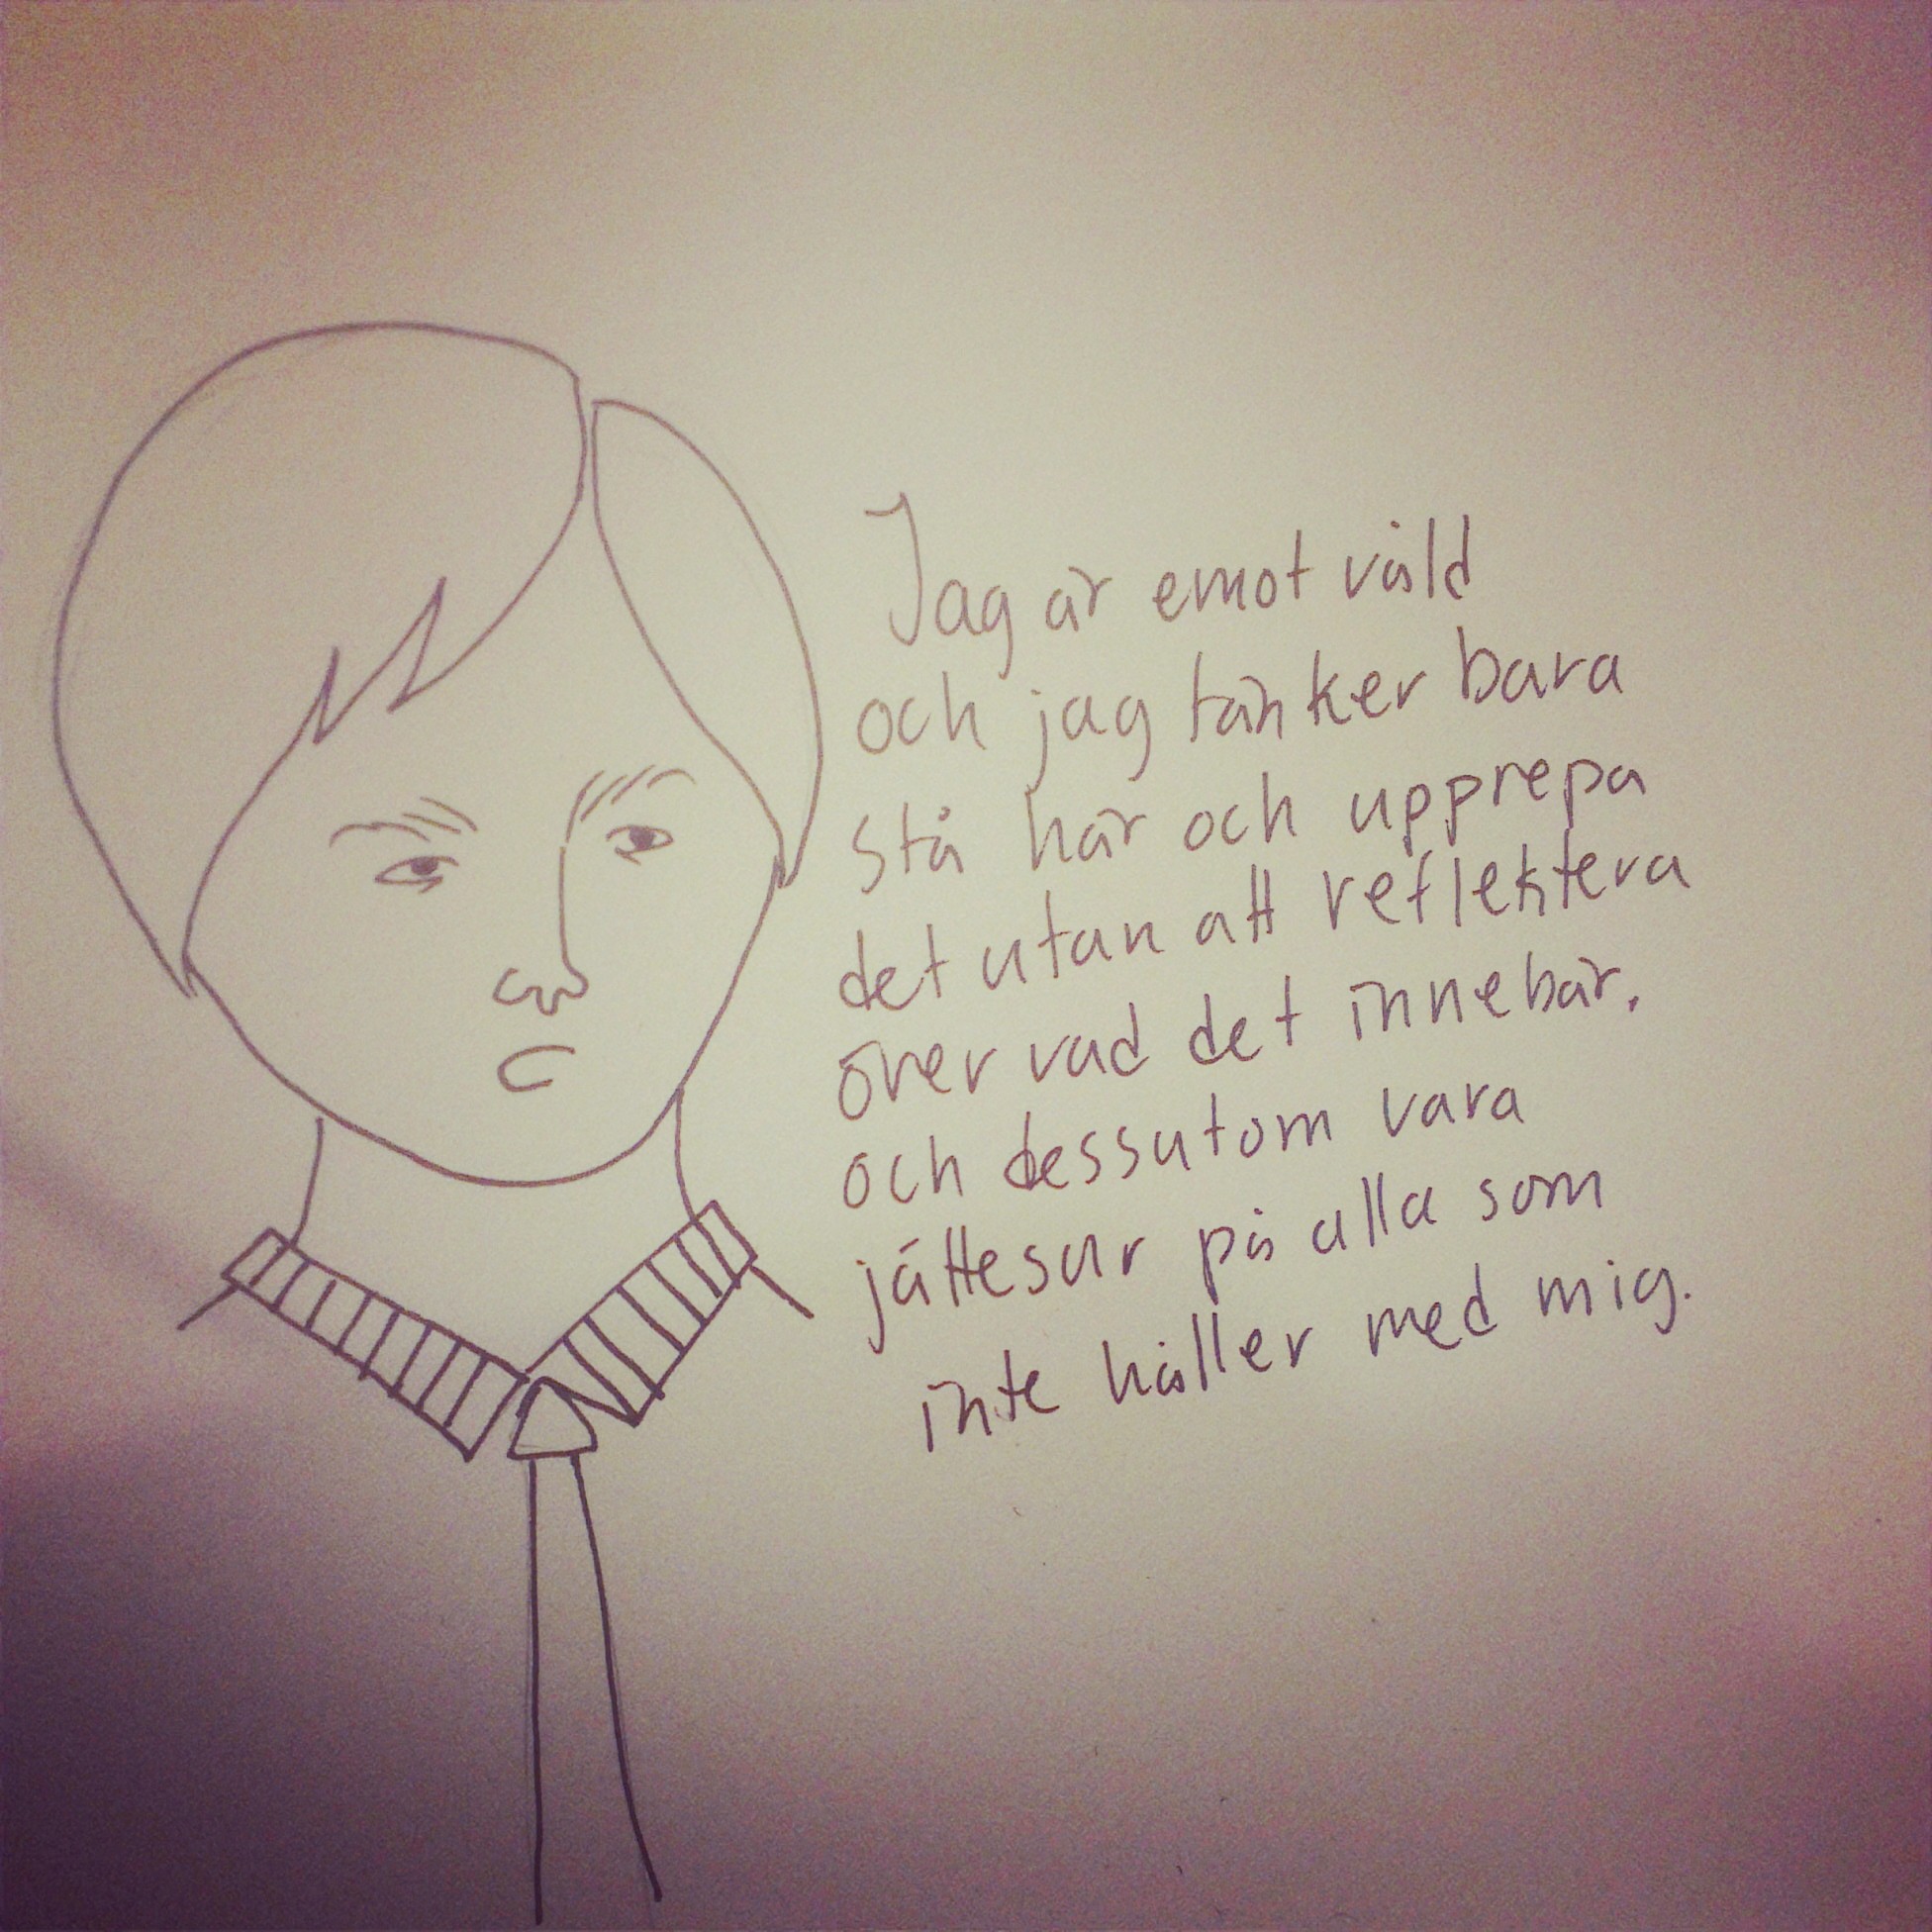 Jag är emot våld
och jag tänker bara
stå här och upprepa
det utan att reflektera
över vad det innebär.
och dessutom vara
jättesur på alla som
inte håller med mig.